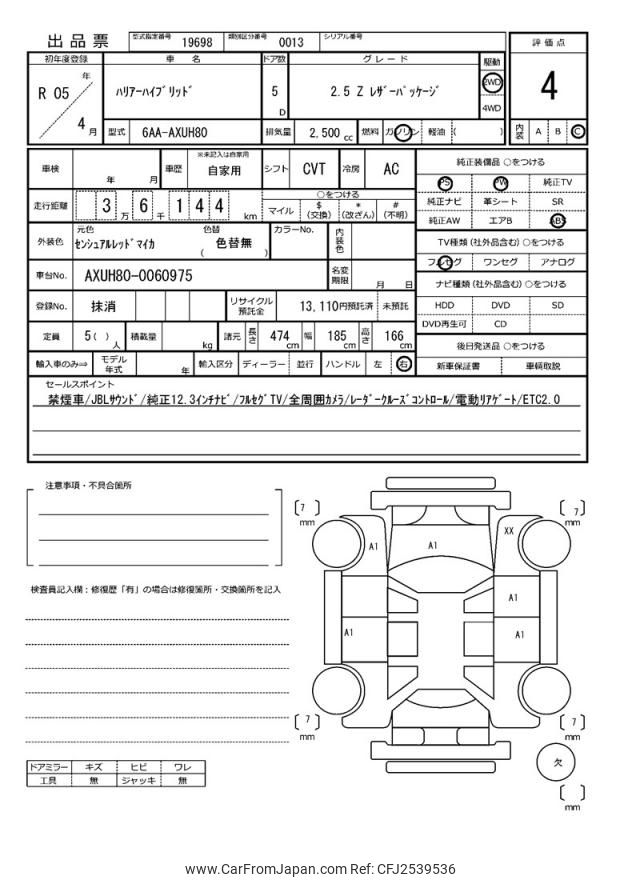 出品票 型式指定番号 19698 類別区分番号 0013 シリアル番号
評価点
4
内装 A B C
初年度登録 車名 ドア数 グレード 駆動
R 05 年 4 月
ハリアーハイブリッド 5 D 2.5 Z レザーパッケージ 2WD 4WD
型式 6AA-AXUH80 排気量 2,500 cc 燃料 ガソリン 軽油 ( )
車検 年 月 車歴 ※未記入は自家用 自家用 シフト CVT 冷房 AC
走行距離 3 万 6 千 1 4 4 km
○をつける
マイル $ (交換) * (改ざん) # (不明)
外装色 元色 センシュアルレッドマイカ 色替 ( 色替無 ) カラーNo. 内装色
車台No. AXUH80-0060975 名変期限 月 日
登録No. 抹消 リサイクル預託金 13,110円預託済 未預託
定員 5( ) 人 積載量 kg 諸元 長さ 474 cm 幅 185 cm 高さ 166 cm
輸入車のみ⇒ モデル年式 年 輸入区分 ディーラー 並行 ハンドル 左 右
純正装備品 ○をつける
PS PW 純正TV
純正ナビ 革シート SR
純正AW エアB ABS
TV種類 (社外品含む) ○をつける
フルセグ ワンセグ アナログ
ナビ種類 (社外品含む) ○をつける
HDD DVD SD
DVD再生可 CD
後日発送品 ○をつける
新車保証書 車輌取説
セールスポイント
禁煙車/JBLサウンド/純正12.3インチナビ/フルセグTV/全周囲カメラ/レーダークルーズコントロール/電動リアゲート/ETC2.0
注意事項・不具合箇所
検査員記入欄：修復歴「有」の場合は修復箇所・交換箇所を記入
ドアミラー キズ ヒビ ワレ
工具 無 ジャッキ 無
7 mm
7 mm
A1 A1 XX
A1
A1 A1
7 mm
7 mm
欠
mm
www.CarFromJapan.com Ref: CFJ2539536